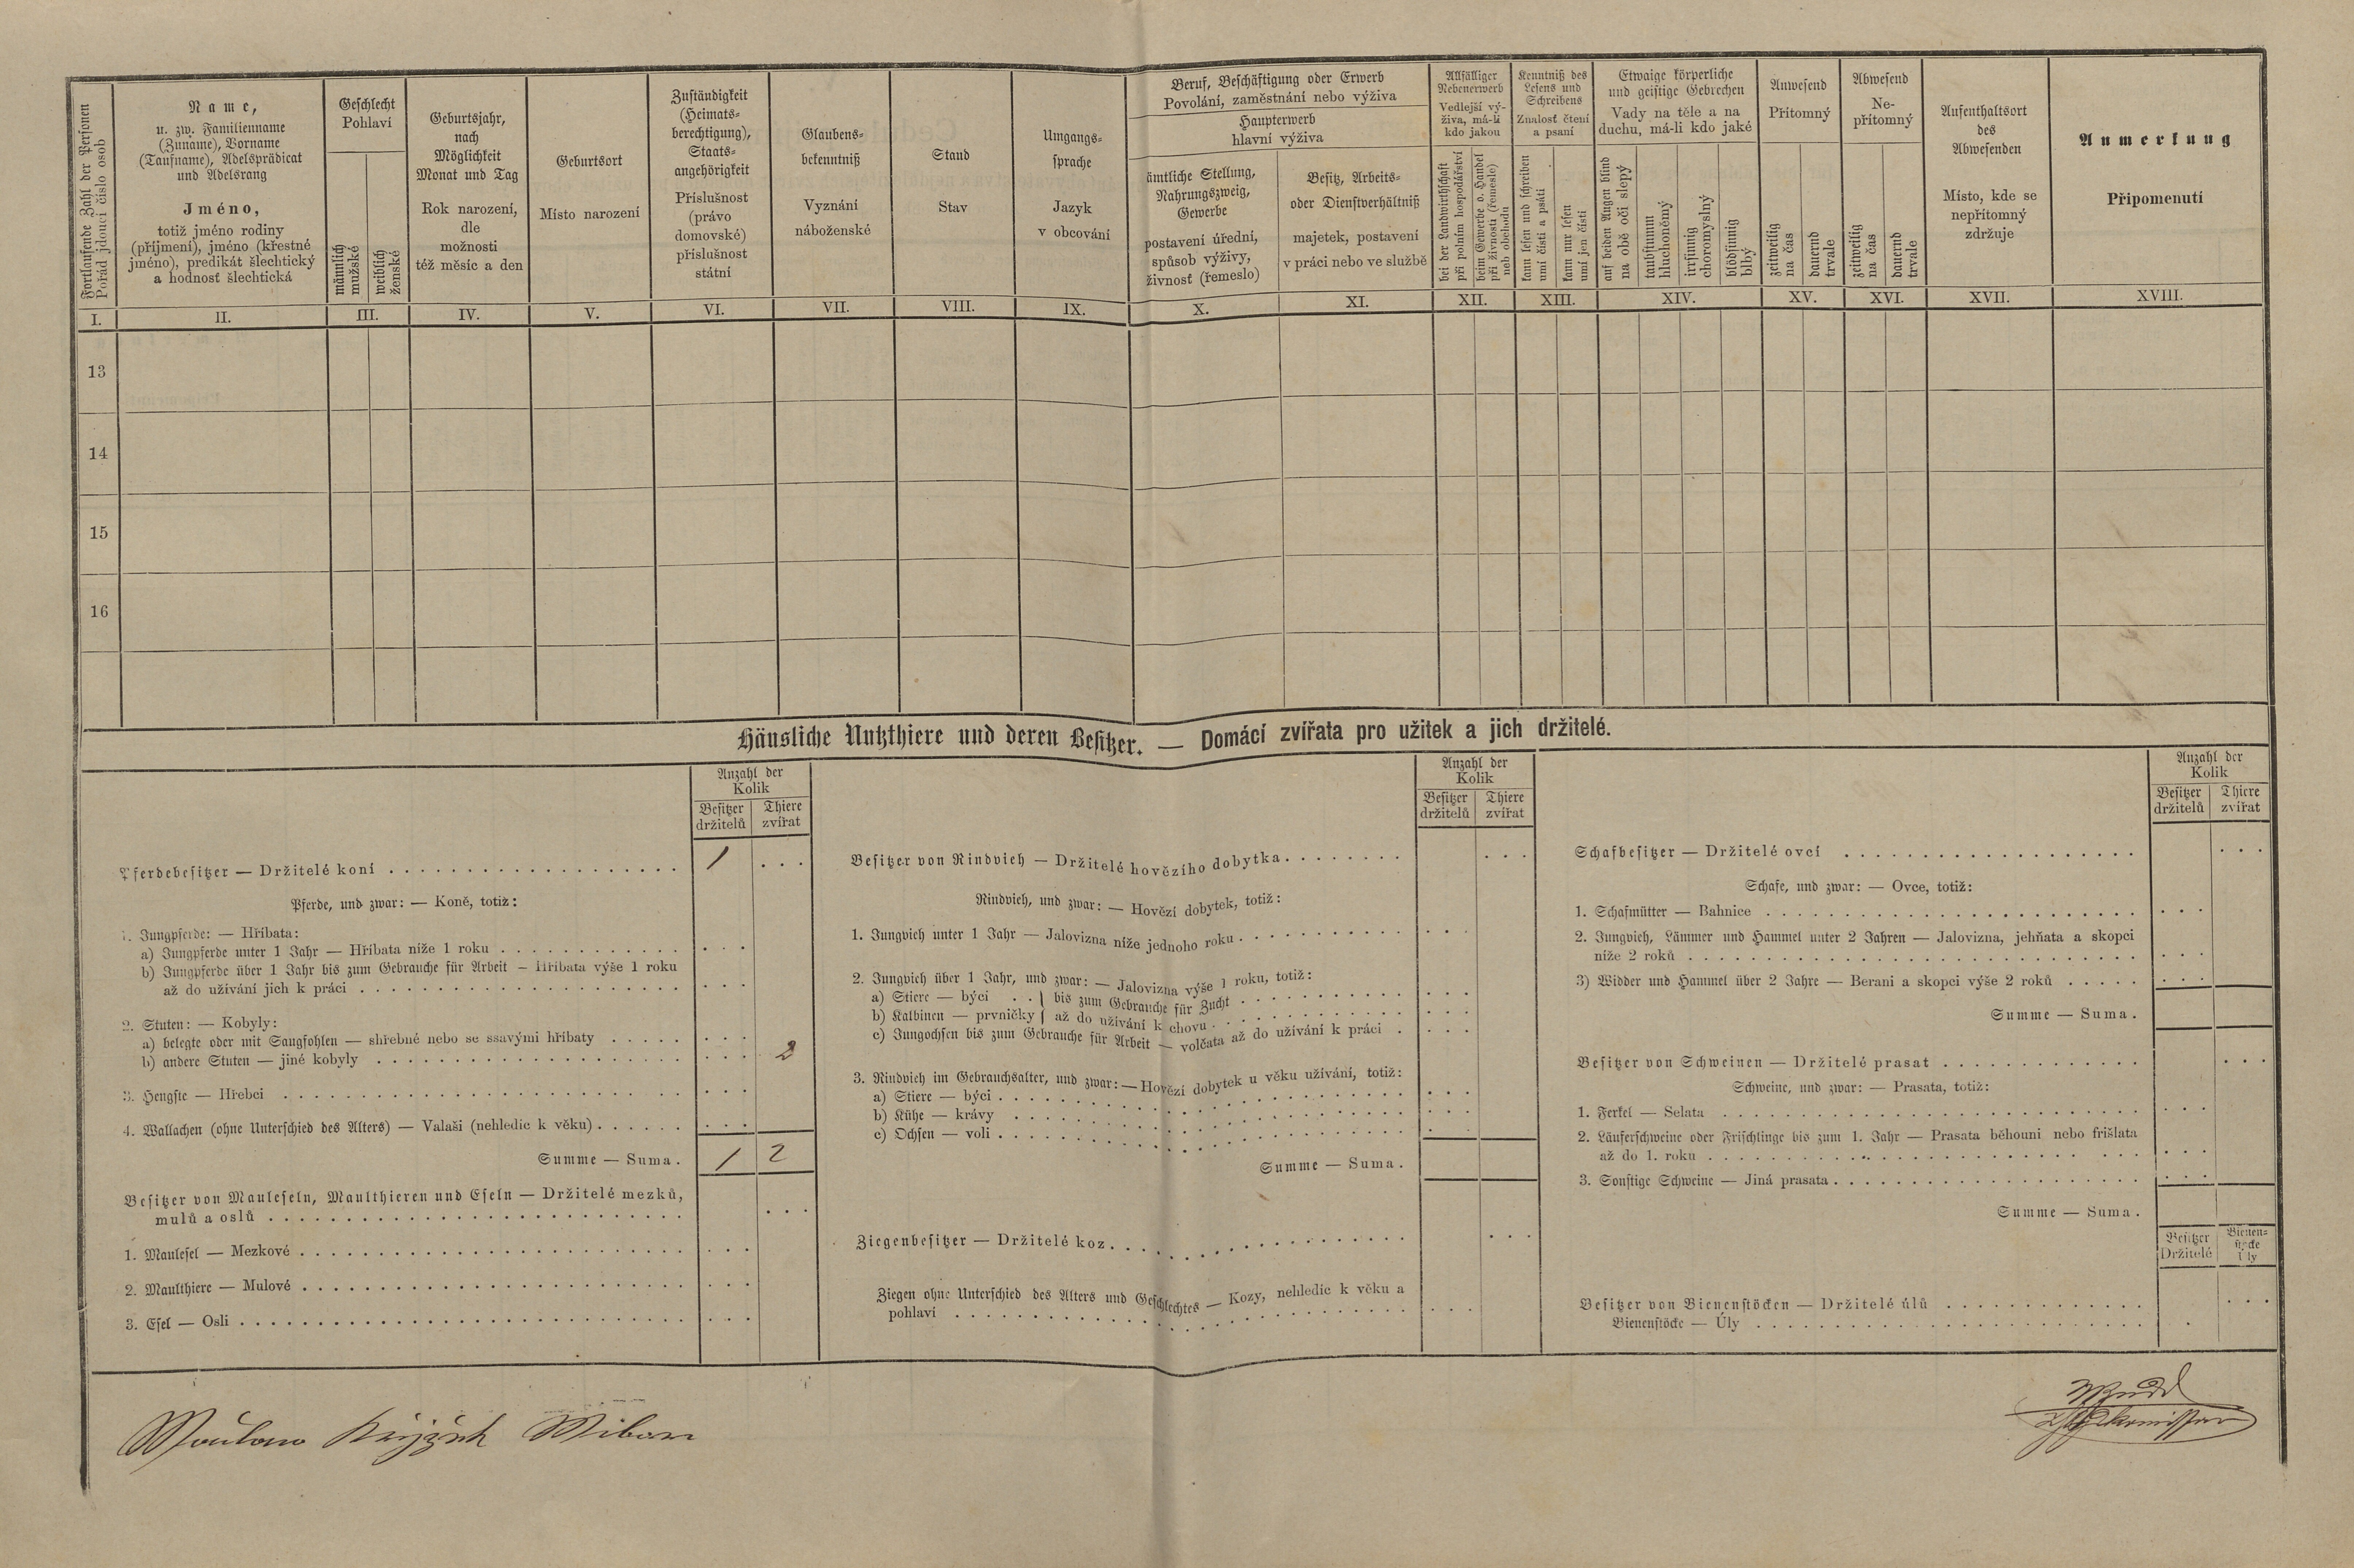 Fortlaufende Zahl der Personen
Pořád jdoucí číslo osob
Name,
u. zw. Familienname
(Zuname), Vorname
(Taufname), Adelsprädicat
und Adelsrang
Jméno,
totiž jméno rodiny
(příjmení), jméno (křestné
jméno), predikát šlechtický
a hodnost šlechtická
Geschlecht
Pohlaví
männlich
mužské
weiblich
ženské
Geburtsjahr,
nach
Möglichkeit
Monat und Tag
Rok narození,
dle
možnosti
též měsíc a den
Geburtsort
Místo narození
Zuständigkeit
(Heimats-
berechtigung),
Staats-
angehörigkeit
Příslušnost
(právo
domovské)
příslušnost
státní
Glaubens-
bekenntniß
Vyznání
náboženské
Stand
Stav
Umgangs-
sprache
Jazyk
v obcování
Beruf, Beschäftigung oder Erwerb
Povolání, zaměstnání nebo výživa
Haupterwerb
hlavní výživa
ämtliche Stellung,
Nahrungszweig,
Gewerbe
postavení úřední,
spůsob výživy,
živnost (řemeslo)
Besitz, Arbeits-
oder Dienstverhältniß
majetek, postavení
v práci nebo ve službě
Allfälliger
Nebenerwerb
Vedlejší vý-
živa, má-li
kdo jakou
bei der Landwirthschaft
při polním hospodářství
beim Gewerbe o. Handel
při živnosti (řemesle)
neb obchodu
Kenntniß des
Lesens und
Schreibens
Znalost čtení
a psaní
kann lesen und schreiben
umí čísti a psáti
kann nur lesen
umí jen čísti
Etwaige körperliche
und geistige Gebrechen
Vady na těle a na
duchu, má-li kdo jaké
auf beiden Augen blind
na obě oči slepý
taubstumm
hluchoněmý
irrsinnig
choromyslný
blödsinnig
blbý
Anwesend
Přítomný
zeitweilig
na čas
dauernd
trvale
Abwesend
Ne-
přítomný
zeitweilig
na čas
dauernd
trvale
Aufenthaltsort
des
Abwesenden
Místo, kde se
nepřítomný
zdržuje
Anmerkung
Připomenutí
I. II. III. IV. V. VI. VII. VIII. IX. X. XI. XII. XIII. XIV. XV. XVI. XVII. XVIII.
13
14
15
16
Häusliche Nutzthiere und deren Besitzer. — Domácí zvířata pro užitek a jich držitelé.
Anzahl der
Kolik
Besitzer
držitelů
Thiere
zvířat
Pferdebesitzer — Držitelé koní . . . 1 . . .
Pferde, und zwar: — Koně, totiž:
1. Jungpferde: — Hříbata:
a) Jungpferde unter 1 Jahr — Hříbata níže 1 roku . . .
b) Jungpferde über 1 Jahr bis zum Gebrauche für Arbeit — Hříbata výše 1 roku
až do užívání jich k práci . . .
2. Stuten: — Kobyly:
a) belegte oder mit Saugfohlen — shřebné nebo se ssavými hříbaty . . .
b) andere Stuten — jiné kobyly . . . 2
3. Hengste — Hřebci . . .
4. Wallachen (ohne Unterschied des Alters) — Valaši (nehledíc k věku) . . .
Summe — Suma. 1 2
Besitzer von Mauleseln, Maulthieren und Eseln — Držitelé mezků,
mulů a oslů . . .
1. Maulesel — Mezkové . . .
2. Maulthiere — Mulové . . .
3. Esel — Osli . . .
Anzahl der
Kolik
Besitzer
držitelů
Thiere
zvířat
Besitzer von Rindvieh — Držitelé hovězího dobytka . . .
Rindvieh, und zwar: — Hovězí dobytek, totiž:
1. Jungvieh unter 1 Jahr — Jalovizna níže jednoho roku . . .
2. Jungvieh über 1 Jahr, und zwar: — Jalovizna výše 1 roku, totiž:
a) Stiere — býci . . } bis zum Gebrauche für Zucht . . .
b) Kalbinen — prvničky } až do užívání k chovu . . .
c) Jungochsen bis zum Gebrauche für Arbeit — volčata až do užívání k práci . . .
3. Rindvieh im Gebrauchsalter, und zwar: — Hovězí dobytek u věku užívání, totiž:
a) Stiere — býci . . .
b) Kühe — krávy . . .
c) Ochsen — voli . . .
Summe — Suma.
Ziegenbesitzer — Držitelé koz . . .
Ziegen ohne Unterschied des Alters und Geschlechtes — Kozy, nehledíc k věku a
pohlaví . . .
Anzahl der
Kolik
Besitzer
držitelů
Thiere
zvířat
Schafbesitzer — Držitelé ovcí . . .
Schafe, und zwar: — Ovce, totiž:
1. Schafmütter — Bahnice . . .
2. Jungvieh, Lämmer und Hammel unter 2 Jahren — Jalovizna, jehňata a skopci
níže 2 roků . . .
3) Widder und Hammel über 2 Jahre — Berani a skopci výše 2 roků . . .
Summe — Suma.
Besitzer von Schweinen — Držitelé prasat . . .
Schweine, und zwar: — Prasata, totiž:
1. Ferkel — Selata . . .
2. Läuferschweine oder Frischlinge bis zum 1. Jahr — Prasata běhouni nebo frišlata
až do 1. roku . . .
3. Sonstige Schweine — Jiná prasata . . .
Summe — Suma.
Besitzer
Držitelé
Bienen-
stöcke
Úly
Besitzer von Bienenstöcken — Držitelé úlů . . .
Bienenstöcke — Úly . . .